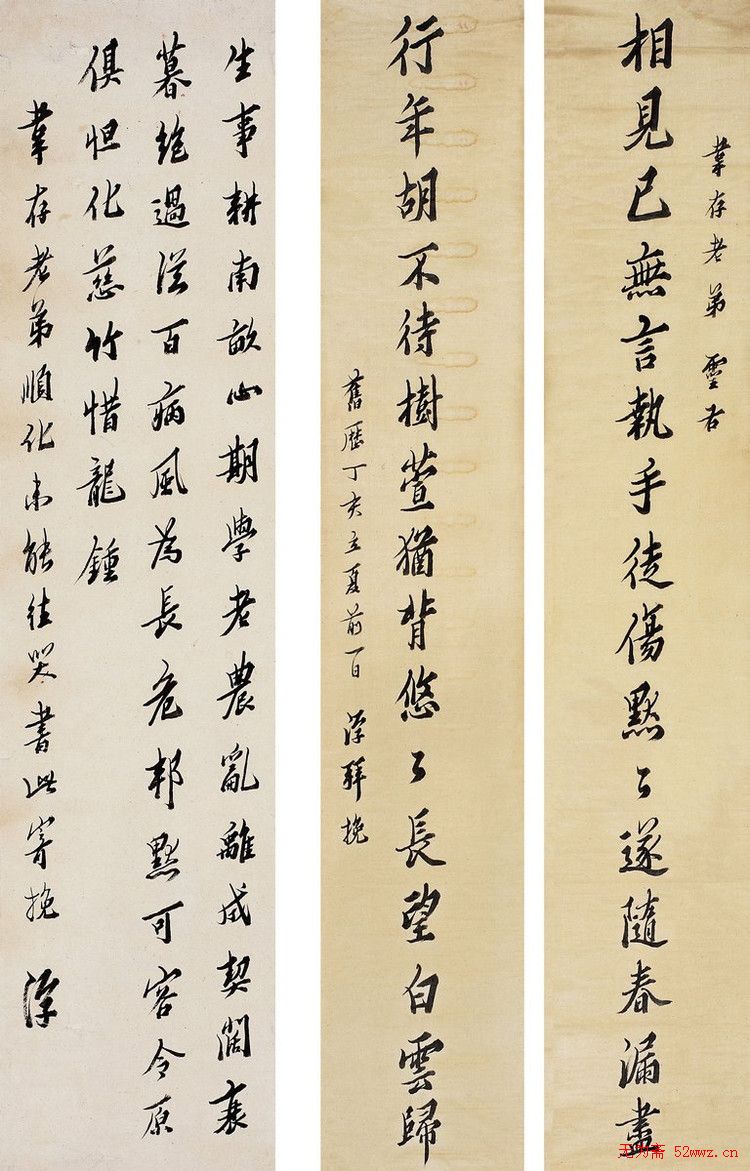 葦存老弟 靈右
相見已無言執手徒傷默〻遂隨春漏盡
行年胡不待樹萱猶背悠〻長望白雲歸
舊歷丁亥立夏前一日 浮拜挽
生事耕南畝心期學老農亂離成契闊衰
暮絕過從百病風為長危邦默可容令原
俱怛化慈竹惜龍鍾
葦存老弟順化未能往哭書此寄挽 浮
无为斋 52wwz.cn